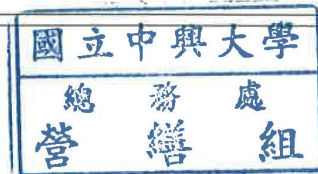 國立中興大學
總務處
營繕組